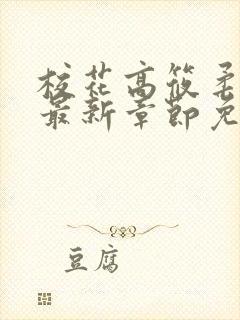 校花高筱柔
最新章节免
豆腐